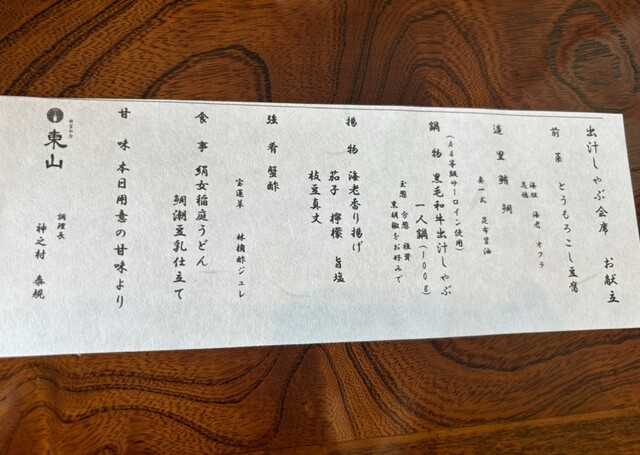 出汁しゃぶ会席　お献立
前菜　とうもろこし豆腐
海胆　海老　オクラ
造里　鮪　鯛
昆布醤油
鍋物　黒毛和牛出汁しゃぶ
一人鍋(100g)
(A4等級サーロイン使用)
玉葱　椎茸
黒胡椒をお好みで
揚物　海老香り揚げ
茄子　檸檬　旨塩
枝豆真丈
強肴　蟹酢
林檎酢ジュレ
食事　絹女稲庭うどん
鯛潮豆乳仕立て
甘味　本日用意の甘味より
東山
調理長
神之村　泰規